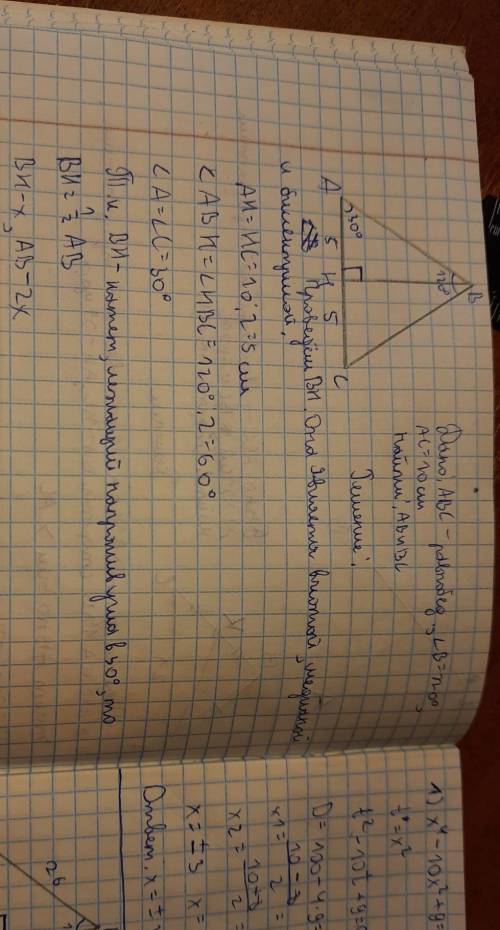 B
120°
30°
A 5 H 5 C
Дано: ABC - равнобед, ∠B=120°,
AC=10см
Найти: AB и BC
Решение:
Проведём BH. Она является высотой, медианой
и биссектрисой.
AH=HC=10:2=5 см
∠ABH=∠HBC=120°:2=60°
∠A=∠C=30°
Т.к. BH-катет, лежащий напротив угла в 30°, то
BH=½ AB
BH-x, AB-2x
1) x⁴-10x²+9=
t=x²
t²-10t+9=
D=100-4·9=
x1=
x2=
x=±3 x=
Ответ: x=±
26